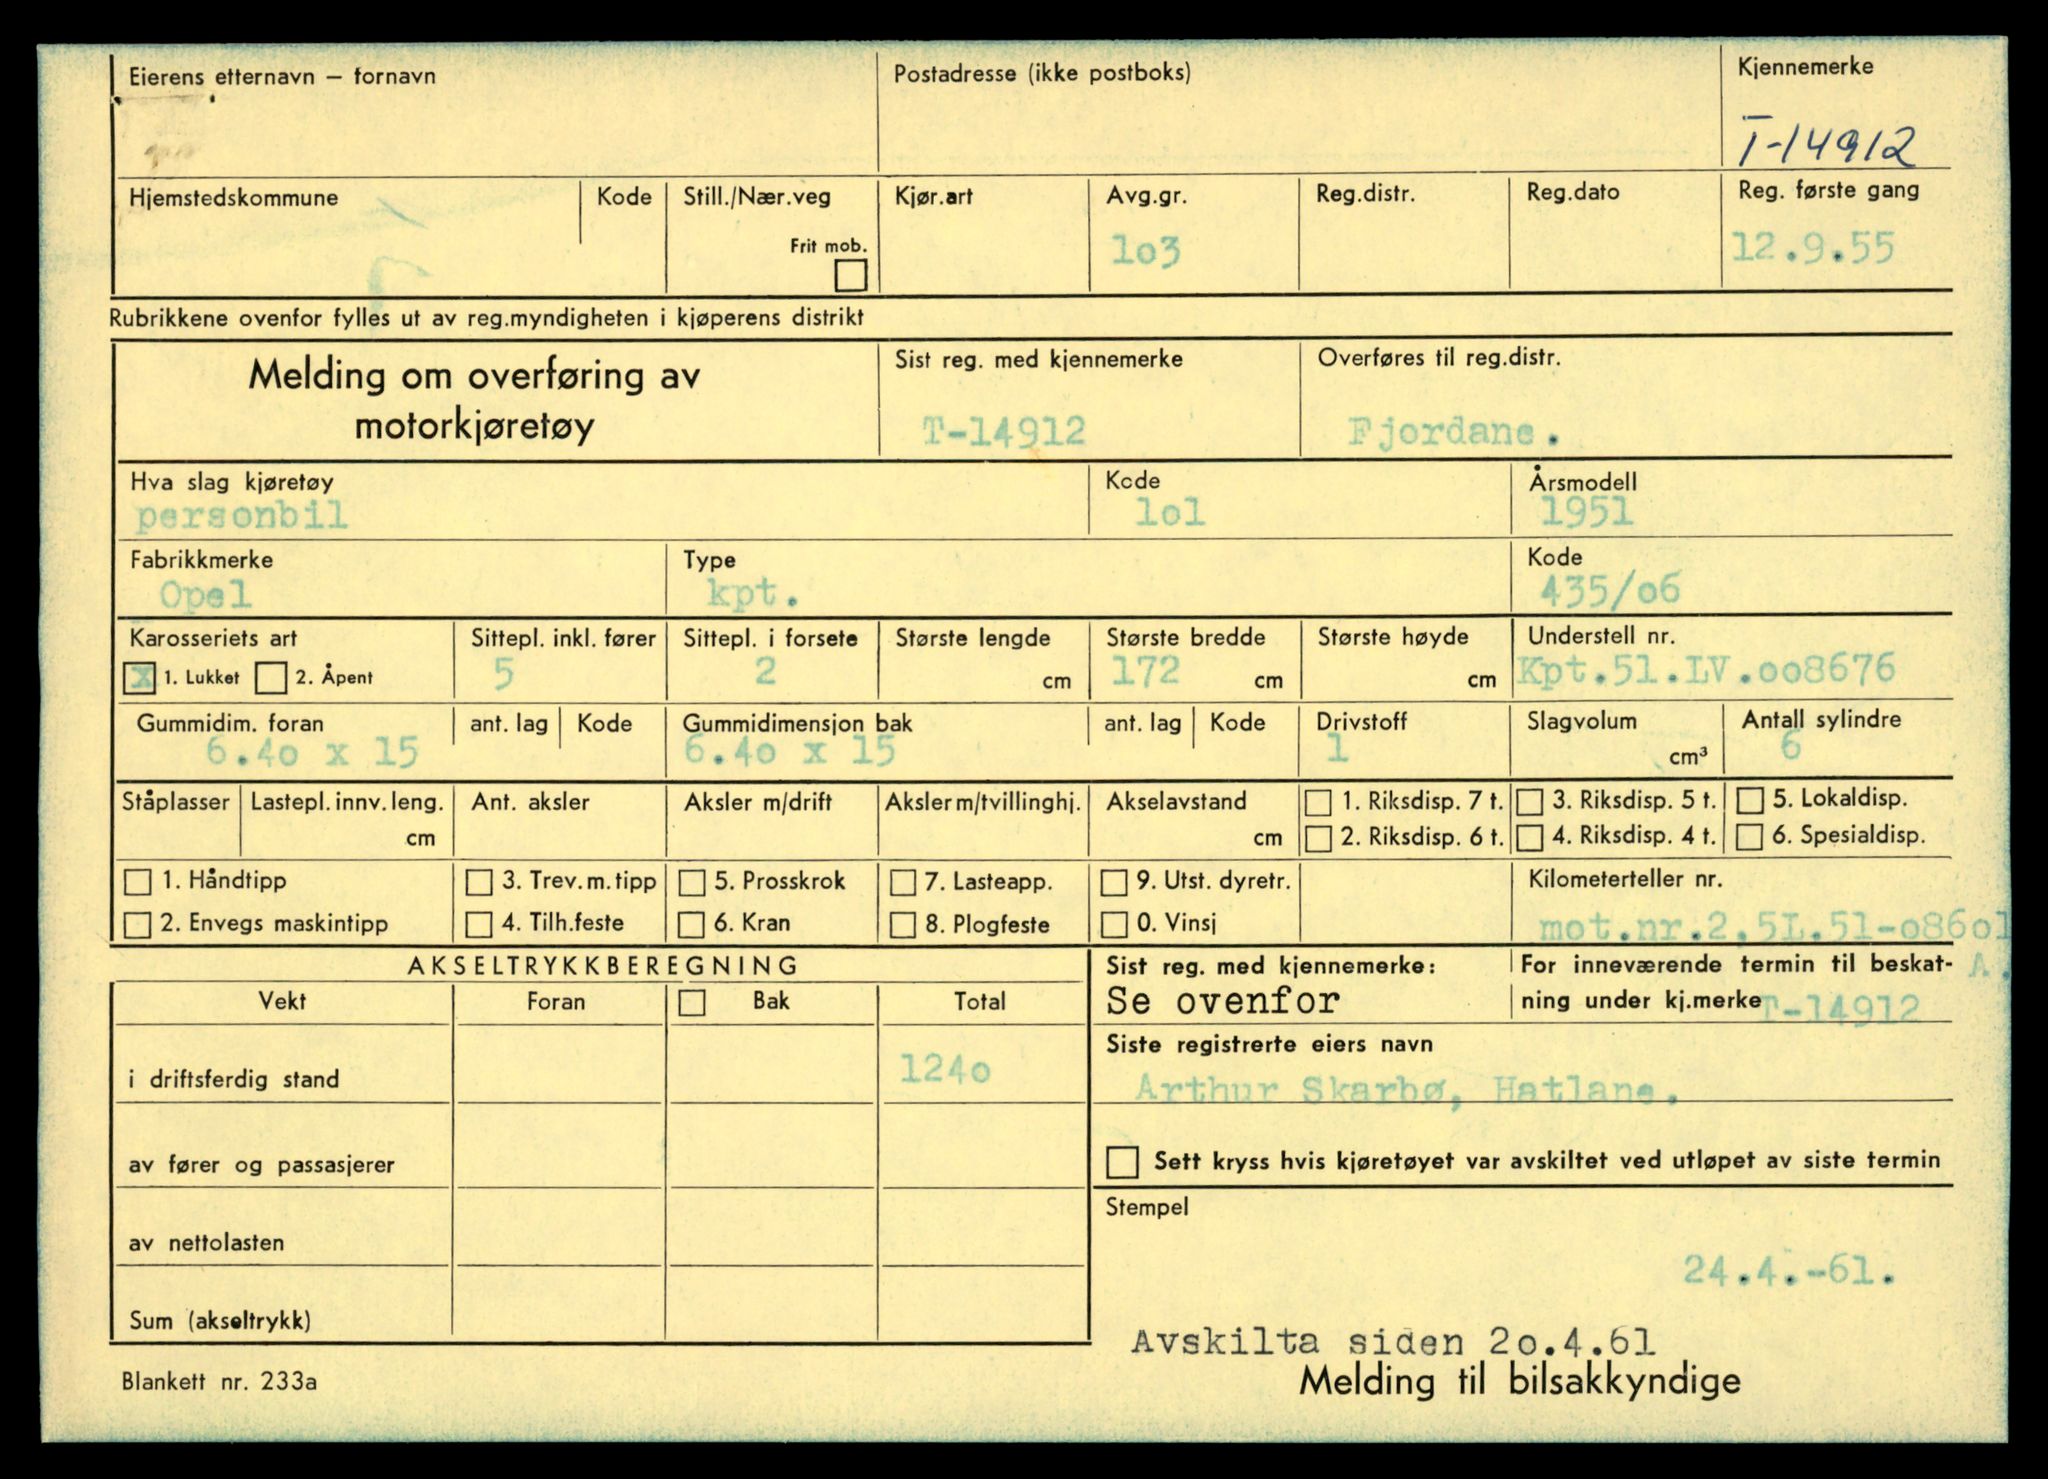 Eierens etternavn – fornavn
Postadresse (ikke postboks)
Kjennemerke
T-14912
Hjemstedskommune
Kode
Still./Nær.veg
Frit mob.
Kjør.art
Avg.gr.
1o3
Reg.distr.
Reg.dato
Reg. første gang
12.9.55
Rubrikkene ovenfor fylles ut av reg.myndigheten i kjøperens distrikt
Melding om overføring av
motorkjøretøy
Sist reg. med kjennemerke
T-14912
Overføres til reg.distr.
Fjordane.
Hva slag kjøretøy
personbil
Kode
lol
Årsmodell
1951
Fabrikkmerke
Opel
Type
kpt.
Kode
435/o6
Karosseriets art
x 1. Lukket 2. Åpent
Sittepl. inkl. fører
5
Sittepl. i forsete
2
Største lengde
cm
Største bredde
172 cm
Største høyde
cm
Understell nr.
Kpt.51.LV.oo8676
Gummidim. foran
6.4o x 15
ant. lag
Kode
Gummidimensjon bak
6.4o x 15
ant. lag
Kode
Drivstoff
1
Slagvolum
cm³
Antall sylindre
6
Ståplasser
Lastepl. innv. leng.
cm
Ant. aksler
Aksler m/drift
Aksler m/tvillinghj.
Akselavstand
cm
1. Riksdisp. 7 t.
2. Riksdisp. 6 t.
3. Riksdisp. 5 t.
4. Riksdisp. 4 t.
5. Lokaldisp.
6. Spesialdisp.
1. Håndtipp
2. Envegs maskintipp
3. Trev.m.tipp
4. Tilh.feste
5. Prosskrok
6. Kran
7. Lasteapp.
8. Plogfeste
9. Utst. dyretr.
0. Vinsj
Kilometerteller nr.
mot.nr.2.5L.51-o86o1
A.
AKSELTRYKKBEREGNING
Vekt
Foran
Bak
Total
i driftsferdig stand
124o
av fører og passasjerer
av nettolasten
Sum (akseltrykk)
Sist reg. med kjennemerke:
Se ovenfor
For inneværende termin til beskat-
ning under kj.merke T-14912
Siste registrerte eiers navn
Arthur Skarbø, Hatlane.
Sett kryss hvis kjøretøyet var avskiltet ved utløpet av siste termin
Stempel
24.4.-61.
Avskilta siden 2o.4.61
Melding til bilsakkyndige
Blankett nr. 233a